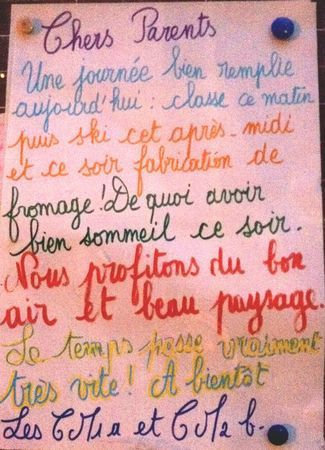 Chers Parents
Une journée bien remplie
aujourd'hui : classe ce matin
puis ski cet après-midi
et ce soir fabrication de
fromage ! De quoi avoir
bien sommeil ce soir.
Nous profitons du bon
air et beau paysage.
Le temps passe vraiment
très vite ! A bientôt
Les CM1a et CM2 b.